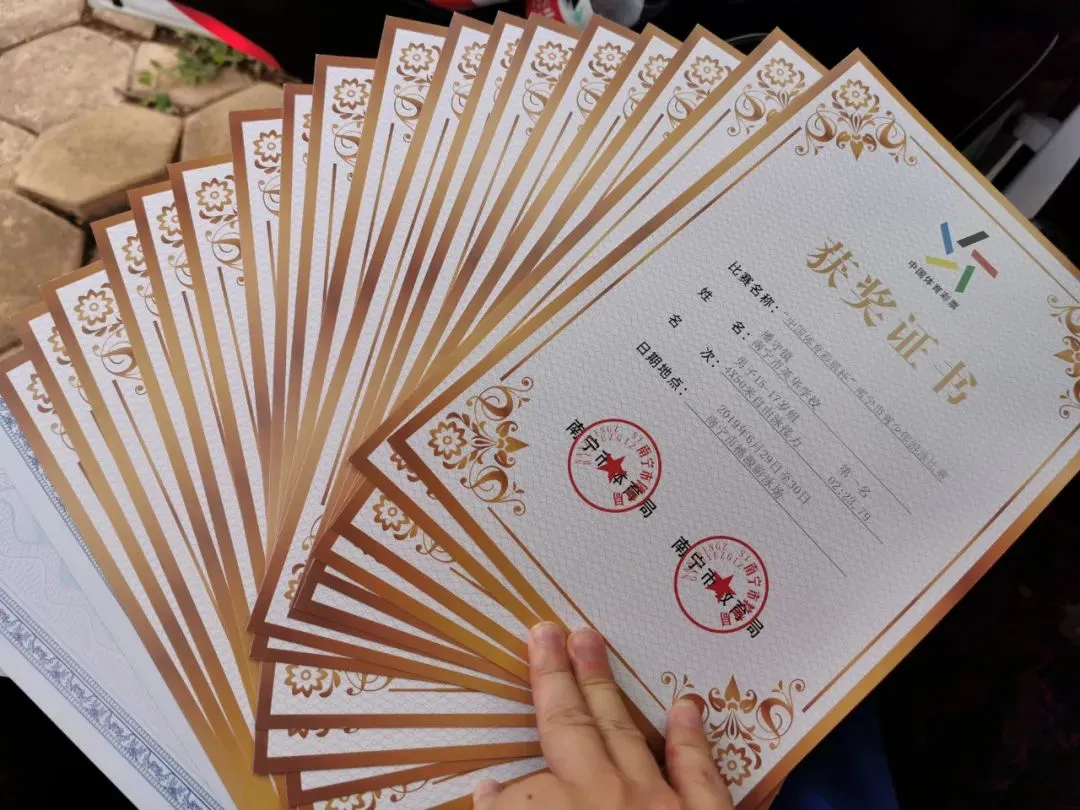 中国体育彩票
获奖证书
比赛名称：“中国体育彩票杯”南宁市青少年游泳比赛
姓 名：潘守镇
南宁市英华学校
名 次：男子15-17岁组 第 名
4X50米自由泳接力 02:23.79
日期地点：2019年6月29日至30日
南宁市 游泳场
南宁市体育局
南宁市教育局